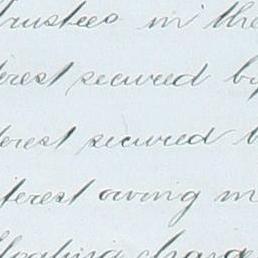 trustees in the
erest secured by
terest secured b
terest owing in
floating charge